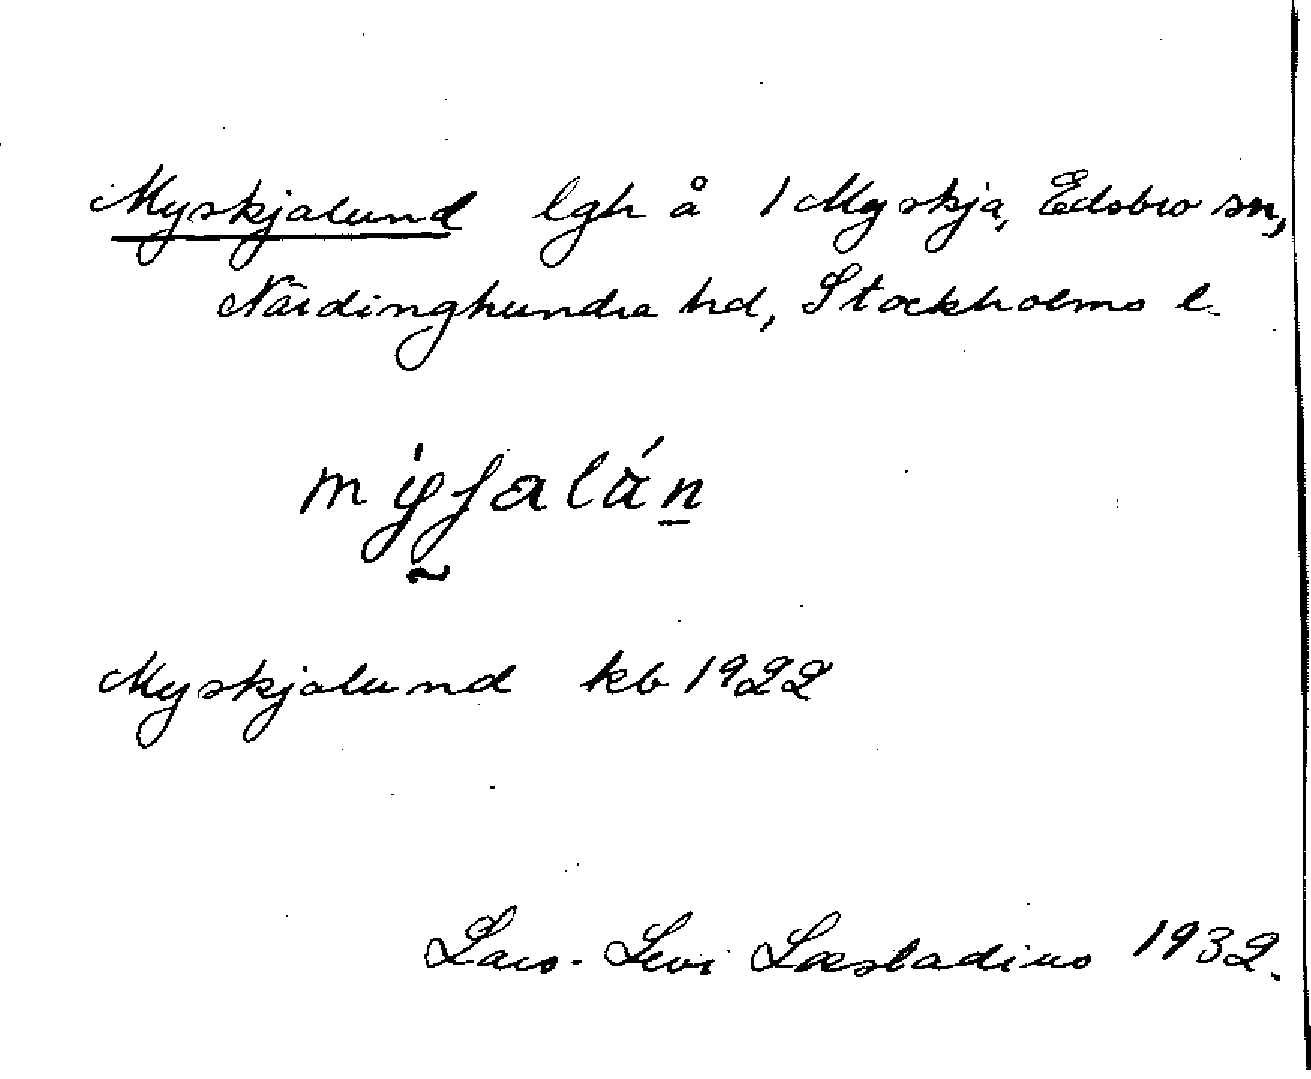 Myskjalund lgh å 1 Myskja, Edsbro sn,
Närdinghundra hd, Stockholms l.
Myskjalund kb 1922
Lars-Levi Læstadius 1932.